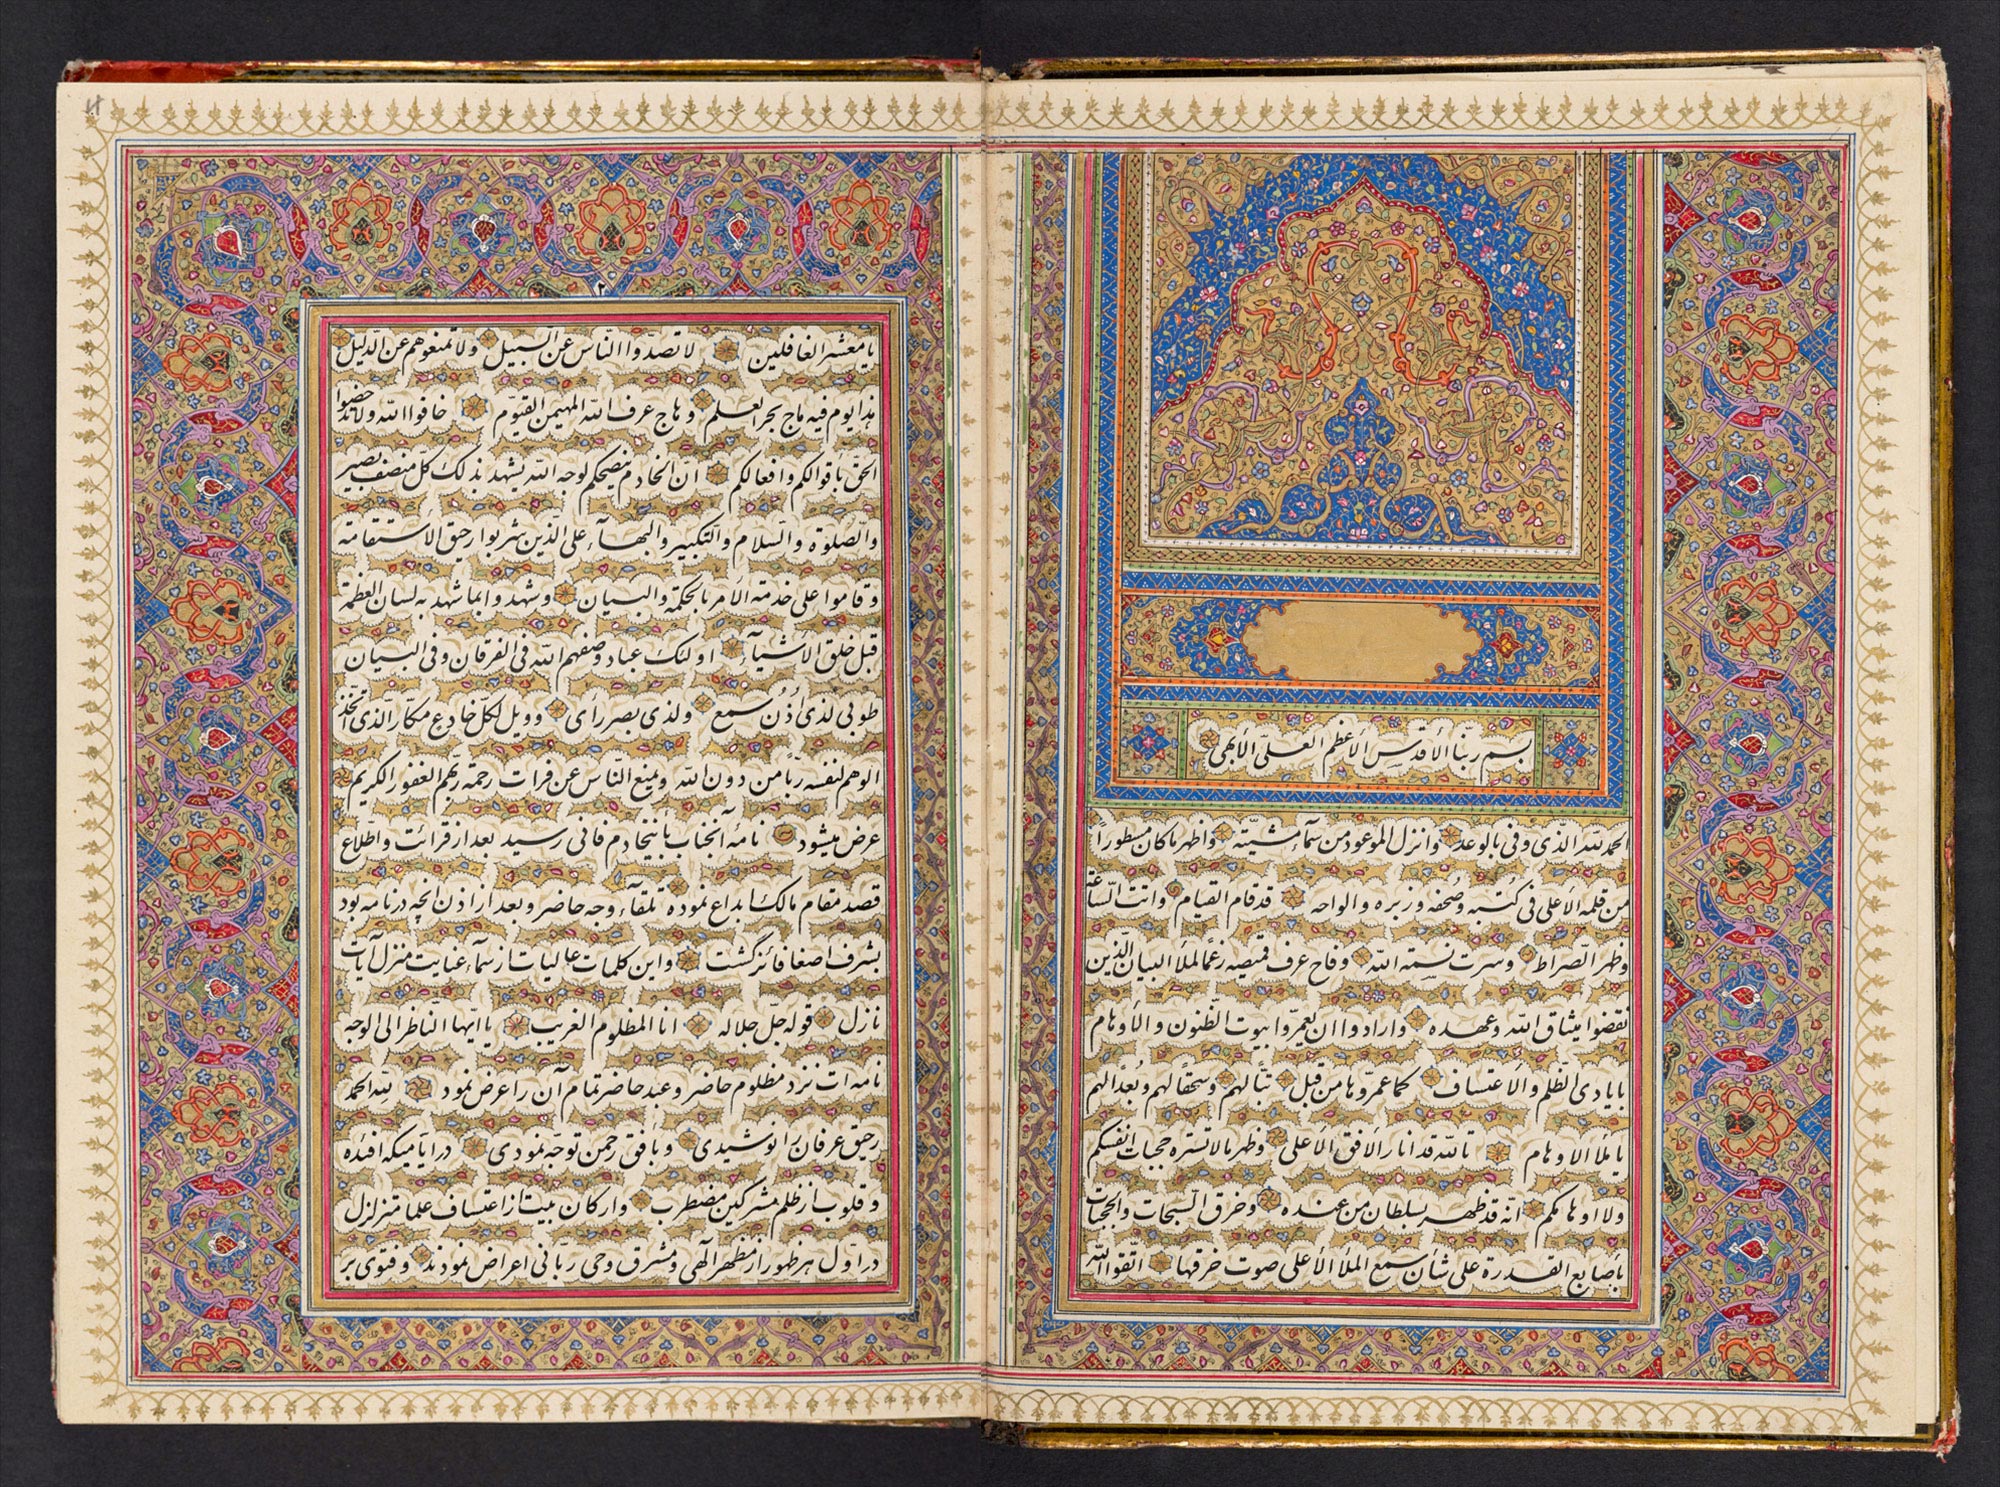 بسم ربنا الأقدس الأعظم العلیّ الأبهی
الحمد للّه الّذی وفی بالوعد وانزل الموعود من سمآء مشیّته واظهر ماکان مسطوراً
من قلمه الأعلی فی کتبه وصُحفه وزبره والواحه قد قام القیام واتت السّاعة
وظهر الصّراط وسرت نسمة اللّه وفاح عرف قمیصه رغماً لملأ البیان الّذین
نقضوا میثاق اللّه وعهده وارادوا ان یعمّروا بیوت الظّنون والأوهام
بایادی الظلم والأعتساف کما عمّروها من قبل تبّاً لهم وسحقاً لهم وبُعداً لهم
یا ملأ الاوهام تاللّه قد انار الأفق الأعلی وظهر مالاتستره حجبات انفسکم
ولا اوهامکم انّه قد ظهر بسلطان من عنده وخرق السّبحات والحجبات
بأصابع القدرة علی شأن سمع الملأ الأعلی صوت خرقها اتقوا اللّه
یا معشر الغافلین لا تصدّوا النّاس عن السّبیل ولا تمنعوهم عن الدّلیل
هذا یوم فیه ماج بحر العلم وهاج عرف اللّه المهیمن القیّوم خافوا اللّه ولا تدحضوا
الحقّ باقوالکم وافعالکم انّ الخادم ینصحکم لوجه اللّه یشهد بذلک کلّ منصف بصیر
والصّلوة والسّلام والتّکبیر والبهآء علی الّذین شربوا رحیق الأستقامة
وقاموا علی خدمة الأمر بالحکمة والبیان وشهدوا بما شهد به لسان العظمة
قبل خلق الأشیآء اولئک عباد وصفهم اللّه فی الفرقان وفی البیان
طوبی لذی اُذُن سمع ولذی بصر رأی وویل لکلّ خادع مکّار الّذی اتّخذ
الوهم لنفسه ربّا من دون اللّه ویمنع النّاس عن فرات رحمة ربّهم الغفور الکریم
عرض میشود نامهٔ آنجناب باینخادم فانی رسید بعد از قرائت واطّلاع
قصد مقام مالک ابداع نموده تلقآء وجه حاضر وبعد از اذن آنچه در نامه بود
بشرف اصغا فائز گشت واین کلمات عالیات از سمآء عنایت منزل آیات
نازل قوله جلّ جلاله انا المظلوم الغریب یا ایّها النّاظر الی الوجه
نامه ات نزد مظلوم حاضر وعبد حاضر تمام آن را عرض نمود للّه الحمد
رحیق عرفان را نوشیدی وبأفق رحمن توجّه نمودی در ایّامیکه افئده
وقلوب از ظلم مشرکین مضطرب وارکان بیت از اعتساف علما متزلزل
در اوّل هر ظهور از مظهر الٓهی ومشرق وحی ربّانی اعراض نمودند وفتوی بر